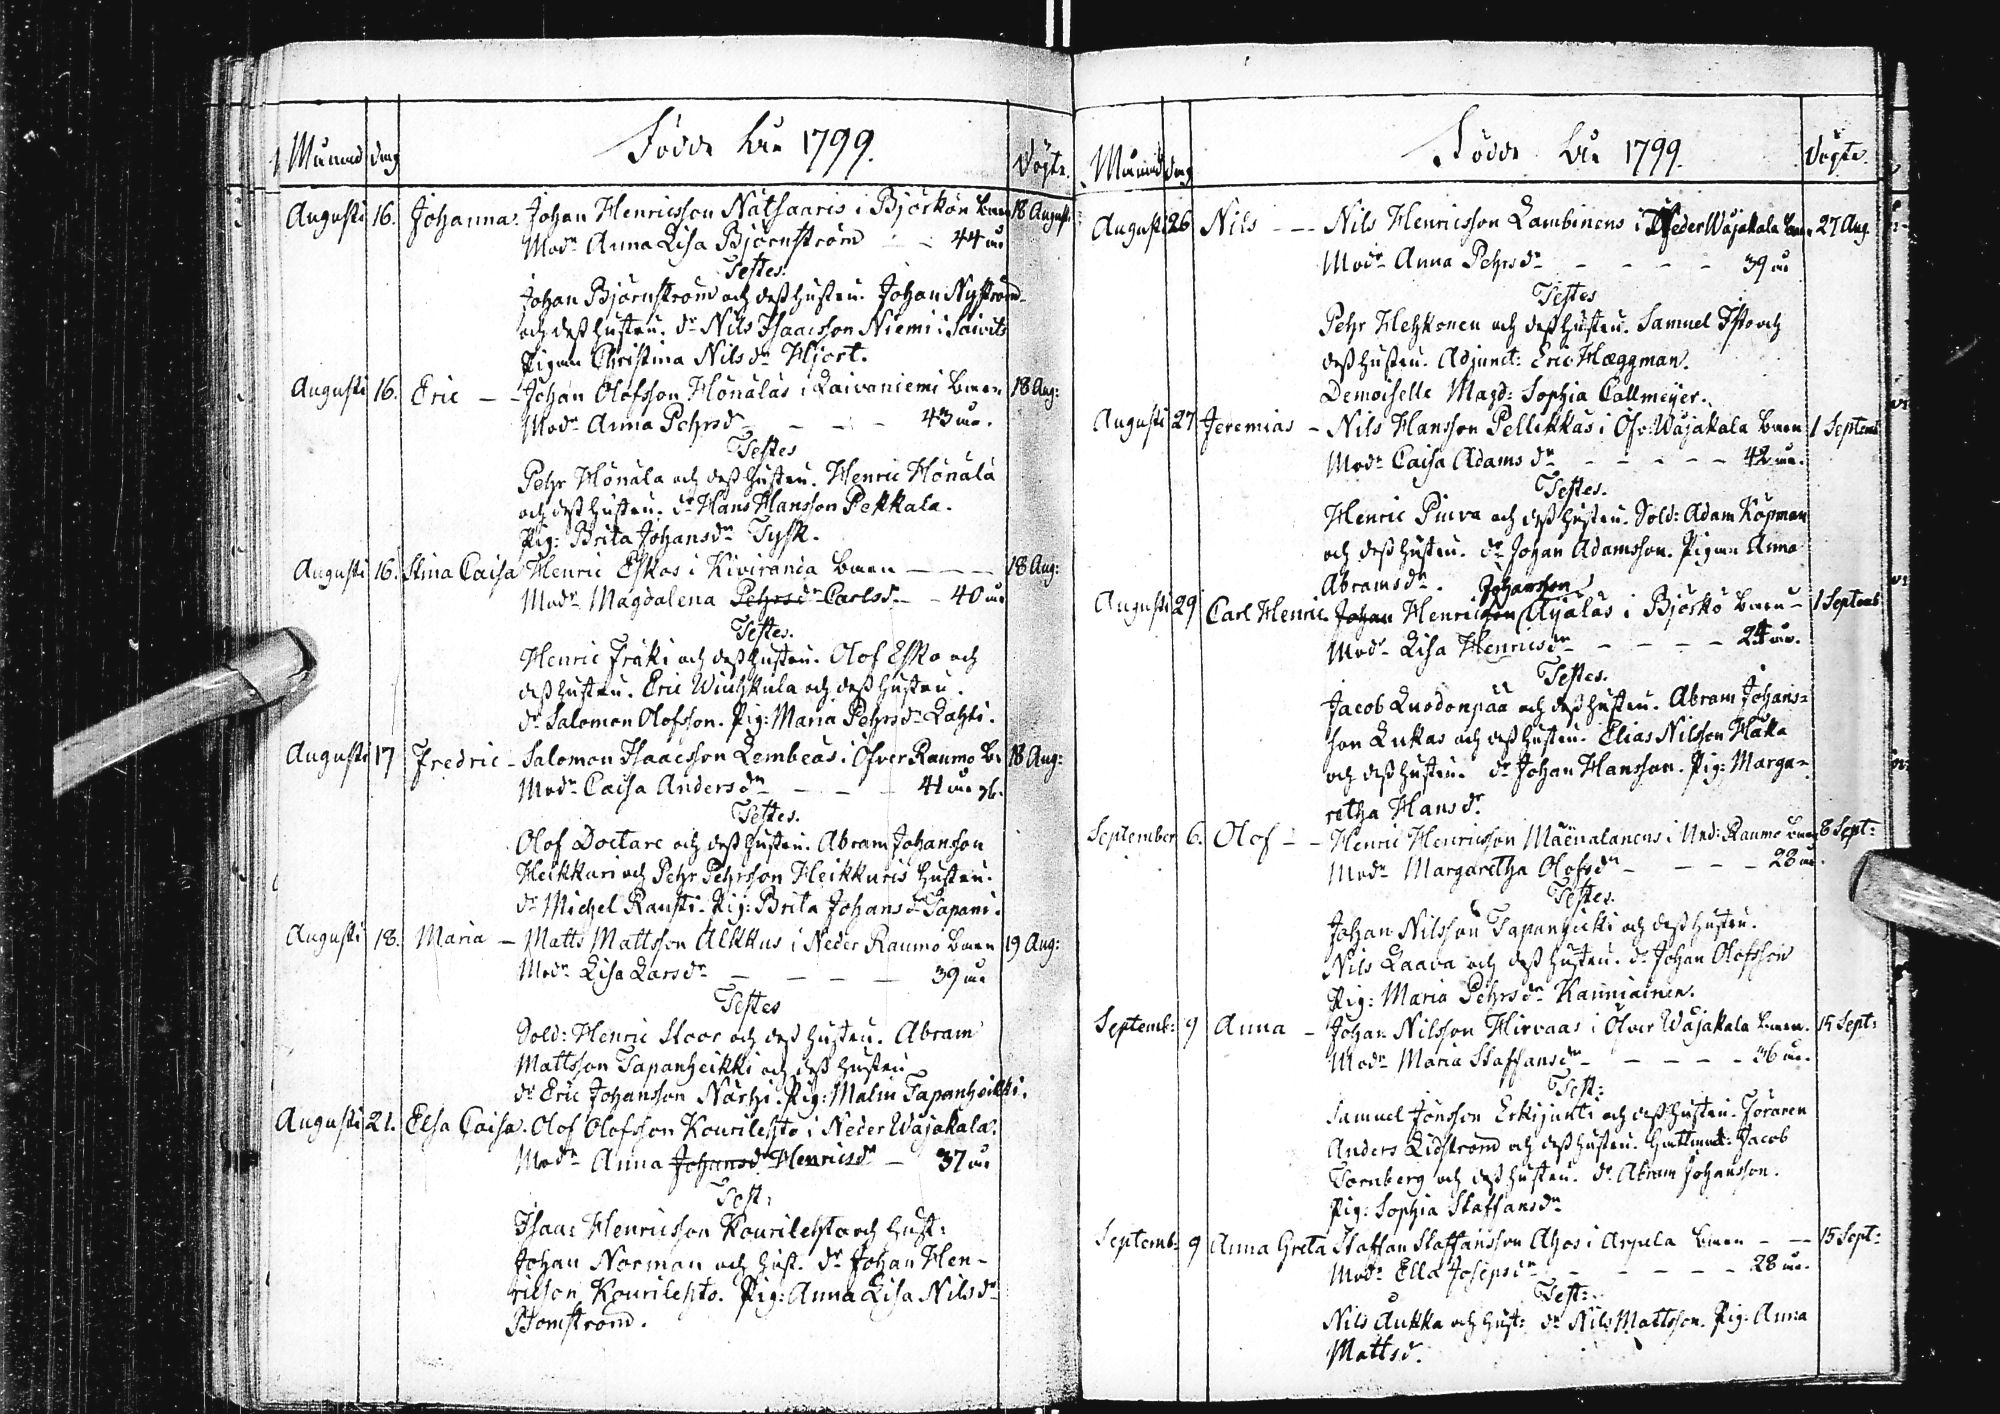 Månad dag Födde barn 1799. Döpte.
Augusti 16. Johanna. Johan Henricsson Nätsaaris i Björkön barn 18 August:
Modr Anna Lisa Björnström - - 44 år
Testes.
Johan Björnström och dess hustru. Johan Nyström
och dess hustru. dr Nils Isaacsson Niemi i Saivits
Pigan Christina Nilsdr Hjort.
Augusti 16. Eric - - Johan Olofsson Hönäläs i Laivaniemi barn 18 Aug:
Modr Anna Pehrsdr - - - 43 år.
Testes
Pehr Hönälä och dess hustru. Henric Hönälä
och dess hustru. dr Hans Hansson Pekkala.
Pig: Brita Johansdr Tysk.
Augusti 16. Stina Caisa Henric Eskos i Kiviranda barn - - - 18 Aug:
Modr Magdalena Pehrsdr Carlsdr - - 40 år
Testes.
Henric Fräki och dess hustru. Olof Esko och
dess hustru. Eric Wiuhkula och dess hustru.
dr Salomon Olofsson. Pig: Maria Pehrsdr Lahti.
Augusti 17 Fredric - Salomon Isaacsson Lembeäs i Öfver Raumo b. 18 Aug:
Modr Caisa Andersdr - - - 41 år
Testes.
Olof Doctare och dess hustru. Abram Johansson
Heikkuri och Pehr Pehrsson Heikkuris hustru.
dr Michel Rausti. Pig: Brita Johansdr Tapani.
Augusti 18. Maria - Matts Mattsson Alkkus i Neder Raumo barn 19 Aug:
Modr Lisa Larsdr - - - - 39 år
Testes
Sold: Henric Stoor och dess hustru. Abram
Mattsson Tapanheikki och dess hustru
dr Eric Johansson Närhi. Pig: Malin Tapanheikki.
Augusti 21. Elsa Caisa. Olof Olofsson Kourilehto i Neder Wäjakala.
Modr Anna Johansdr Henricsdr - 37 år
Test:
Isaac Henricsson Kourilehto och hust:
Johan Norman och hust. dr Johan Hen-
ricson Kourilehto. Pig: Anna Lisa Nilsdr
Blomström.
Månad dag Födde barn 1799. Döpte.
Augusti 26 Nils - - Nils Henricsson Lambinens i Neder Wäjakala barn 27 Aug.
Modr Anna Pehrsdr - - - - - 39 år
Testes
Pehr Hehkonen och dess hustru. Samuel Isto och
dess hustru. Adjunct: Eric Hæggman.
Demoiselle Magd: Sophia Callmeyer.
Augusti 27 Jeremias - Nils Hansson Pellikkas i Öfv: Wäjakala barn 1 Septemb
Modr Caisa Adamsdr - - - - - 42 år.
Testes.
Henric Puva och dess hustru. Sold: Adam Köpman
och dess hustru. dr Johan Adamsson. Pigan Anna
Abramsdr. Johansson
Augusti 29 Carl Henric. Johan Henricson Äyäläs i Björkö barn - 1 Septemb
Modr Lisa Henricsdr - - - - - 24 år.
Testes.
Jacob Luodonpää och dess hustru. Abram Johans-
son Lukas och dess hustru. Elias Nilsson Haka
och dess hustru. dr Johan Hansson. Pig: Marga-
retha Hansdr
September 6. Olof - - Henric Henricsson Mäenalanens i Ned: Raumo barn 8 Sept:
Modr Margaretha Olofsdr - - - - 28 år.
Testes.
Johan Nilsson Tapanheikki och dess hustru.
Nils Laava och dess hustru. dr Johan Olofsson
Pig: Maria Pehrsdr Kauniainen.
Septemb: 9 Anna - Johan Nilsson Hirvaas i Öfver Wäjakala barn. 15 Sept:
Modr Maria Staffansdr - - - - - 36 år.
Test:
Samuel Jönsson Erkijuntti och dess hustru. Foraren
Anders Lidström och dess hustru. Jacob
Tornberg och dess hustru. dr Abram Johansson.
Pig: Sophia Staffansdr
Septemb: 9 Anna Greta Staffan Staffansson Ahos i Arpela barn - - 15 Sept:
Modr Ella Josepsdr - - - - - 28 år.
Test:
Nils Aukka och hust: dr Nils Mattsson. Pig: Anna
Mattsd.